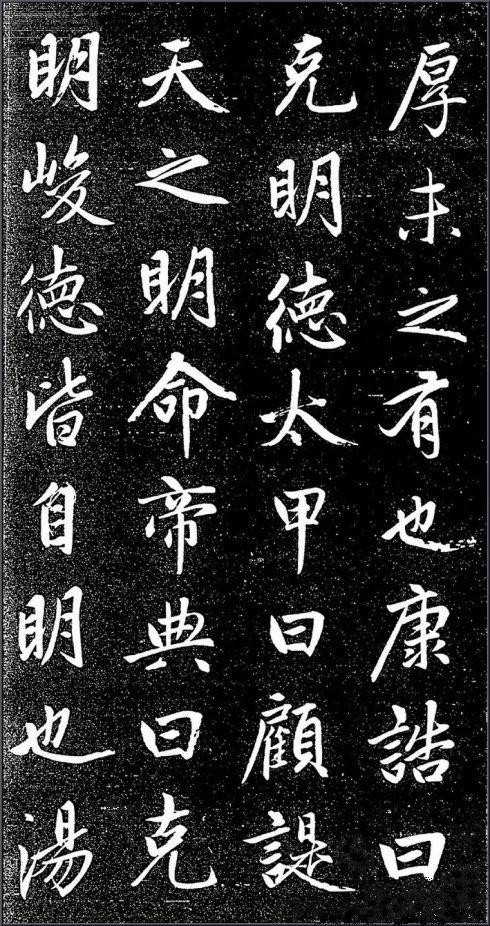 厚未之有也康誥曰
克明德太甲曰顧諟
天之明命帝典曰克
明峻德皆自明也湯